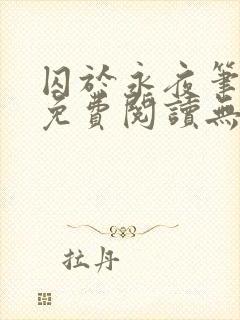 囚於永夜筆
免費閱讀無
拉丹